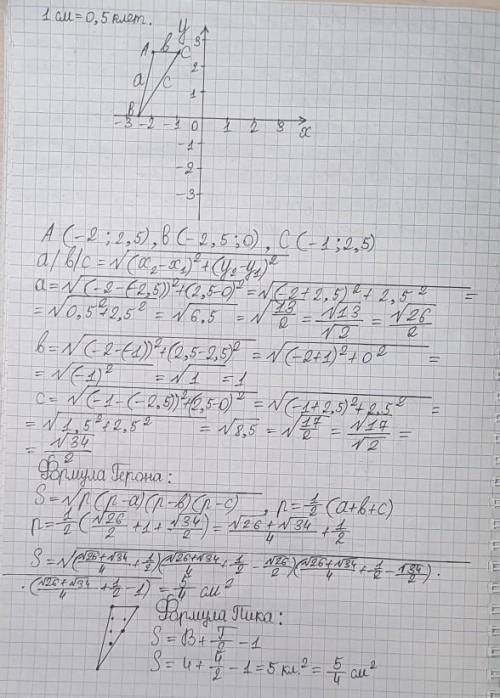 1 см = 0,5 клет.
y
A в C
3
2
a c
1
B
-3 -2 -1 0 1 2 3 x
-1
-2
-3
A (-2 ; 2,5) , B (-2,5 ; 0) , C (-1 ; 2,5)
a/в/c = √((x₂-x₁)²+(y₂-y₁)²)
a = √((-2-(-2,5))²+(2,5-0)²) = √((-2+2,5)²+2,5²) =
= √(0,5²+2,5²) = √6,5 = √(13/2) = √13/√2 = √26/2
в = √((-2-(-1))²+(2,5-2,5)²) = √((-2+1)²+0²) =
= √((-1)²) = √1 = 1
c = √((-1-(-2,5))²+(2,5-0)²) = √((-1+2,5)²+2,5²) =
= √(1,5²+2,5²) = √8,5 = √(17/2) = √17/√2 =
= √34/2
Формула Герона:
S = √(p(p-a)(p-в)(p-c)) , p = 1/2 (a+в+c)
p = 1/2 (√26/2 + 1 + √34/2) = (√26+√34)/4 + 1/2
S = √(((√26+√34)/4 + 1/2)((√26+√34)/4 + 1/2 - √26/2)((√26+√34)/4 + 1/2 - √34/2) ·
· ((√26+√34)/4 + 1/2 - 1)) = 5/4 см²
Формула Пика:
S = B + Г/2 - 1
S = 4 + 4/2 - 1 = 5 кл.² = 5/4 см²